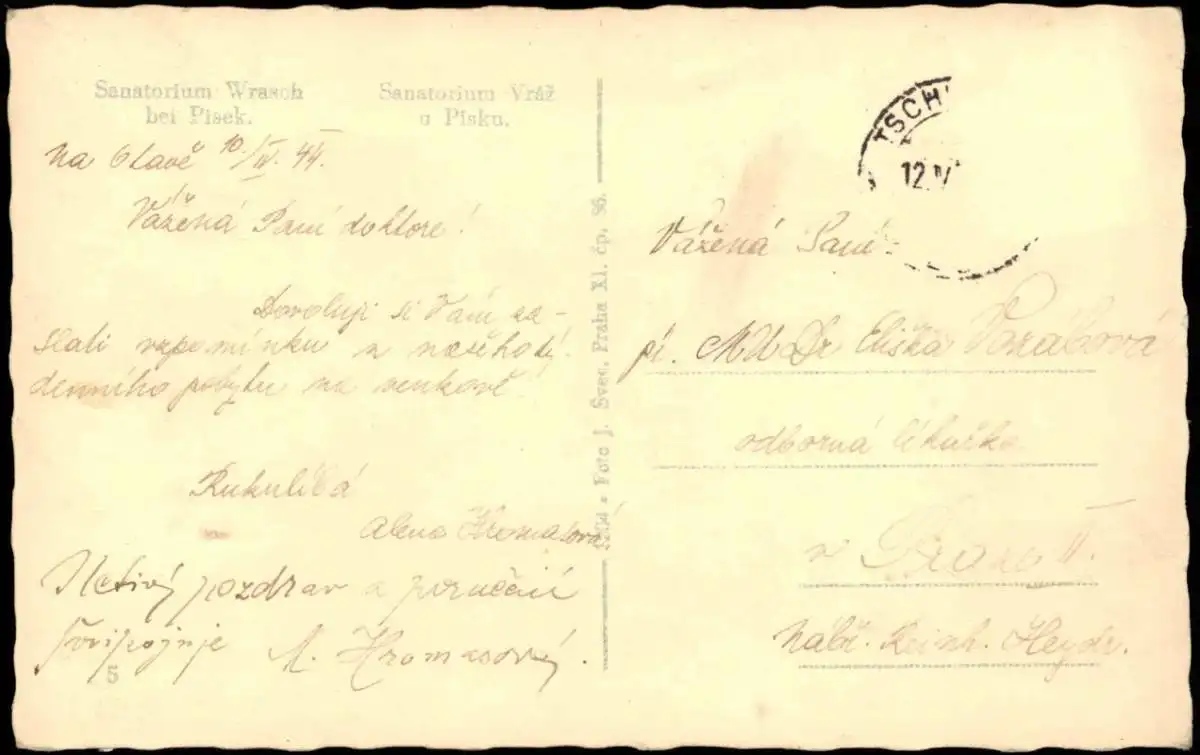 Sanatorium Wrasch
bei Pisek.
Sanatorium Vráž
u Písku.
Na Otavě 10./IV. 44.
Vážená Paní doktore!
Dovoluji si Vám za-
slati vzpomínku z našeho
denního pobytu na venkově!
Rukulíbá
Alena Hromasová
Uctivý pozdrav a poručení
připojuje A. Hromasový.
5
Foto J. Švec, Praha XI. čp. 96.
TSCH
12.IV
Vážená Paní
pí. MUDr Eliška
odborná lékařka
v Praze II.
Nábř. Reinh. Heydr.